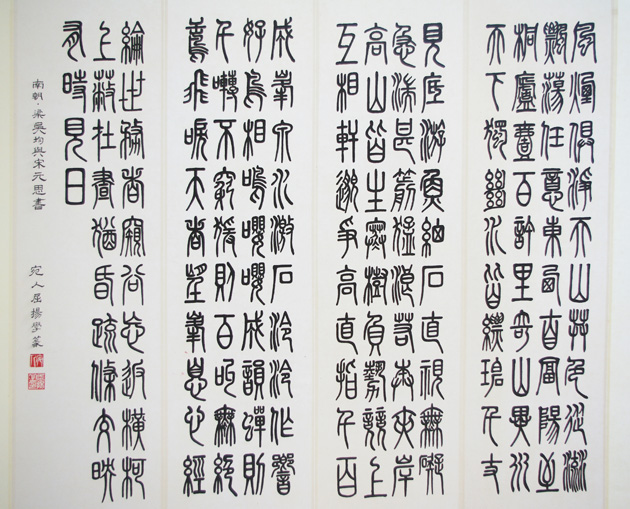 風煙俱淨天山共色從流
飄蕩任意東西自富陽至
桐廬壹百許里奇山異水
天下獨絕水皆縹碧千丈
見底游魚細石直視無礙
急湍甚箭猛浪若奔夾岸
高山皆生寒樹負勢競上
互相軒邈爭高直指千百
成峯泉水激石泠泠作響
好鳥相鳴嚶嚶成韻蟬則
千囀不窮猨則百叫無絕
鳶飛唳天者望峯息心經
綸世務者窺谷忘返橫柯
上蔽在晝猶昏疏條交映
有時見日
南朝·梁吳均與宋元思書
宛人屈揚學篆